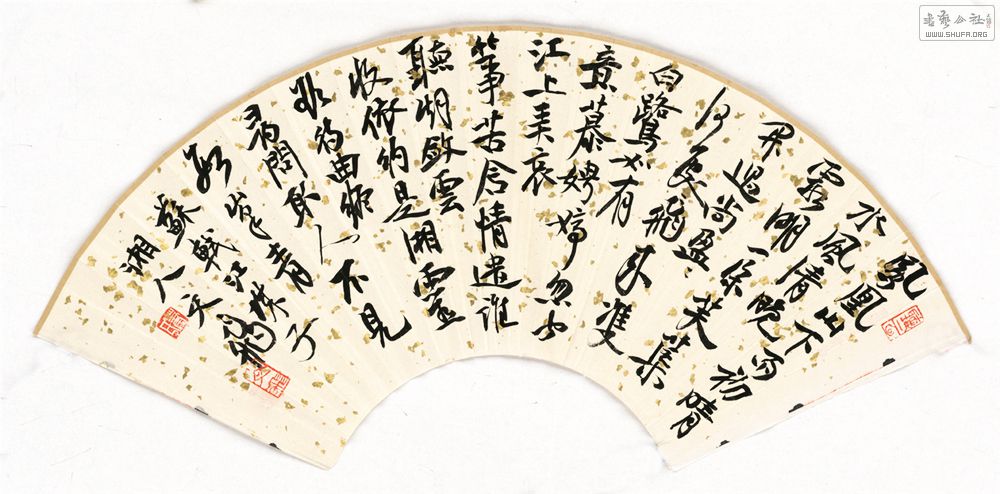 鳳凰山下雨初晴
水風清晚
霞明一朵芙蕖
開過尚盈
何處飛來雙
白鷺如有
意慕娉婷忽聞
江上弄哀
箏苦含情遣誰
聽烟斂雲
收依約是湘靈
欲待曲終
尋問取人不見
數峰青
蘇軾江城子
湘人天
WWW.SHUFA.ORG